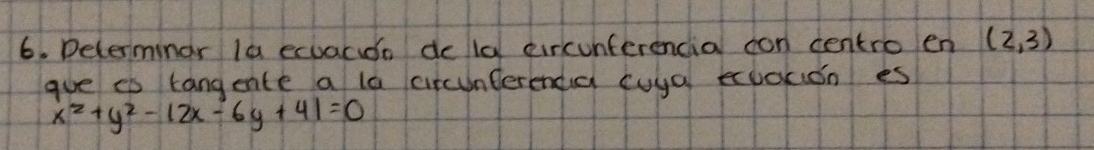 6. Determinar la ecuación de la circunferencia con centro en (2,3)
que es tangente a la circunferencia cuya ecuación es
x²+y²-12x-6y+41=0